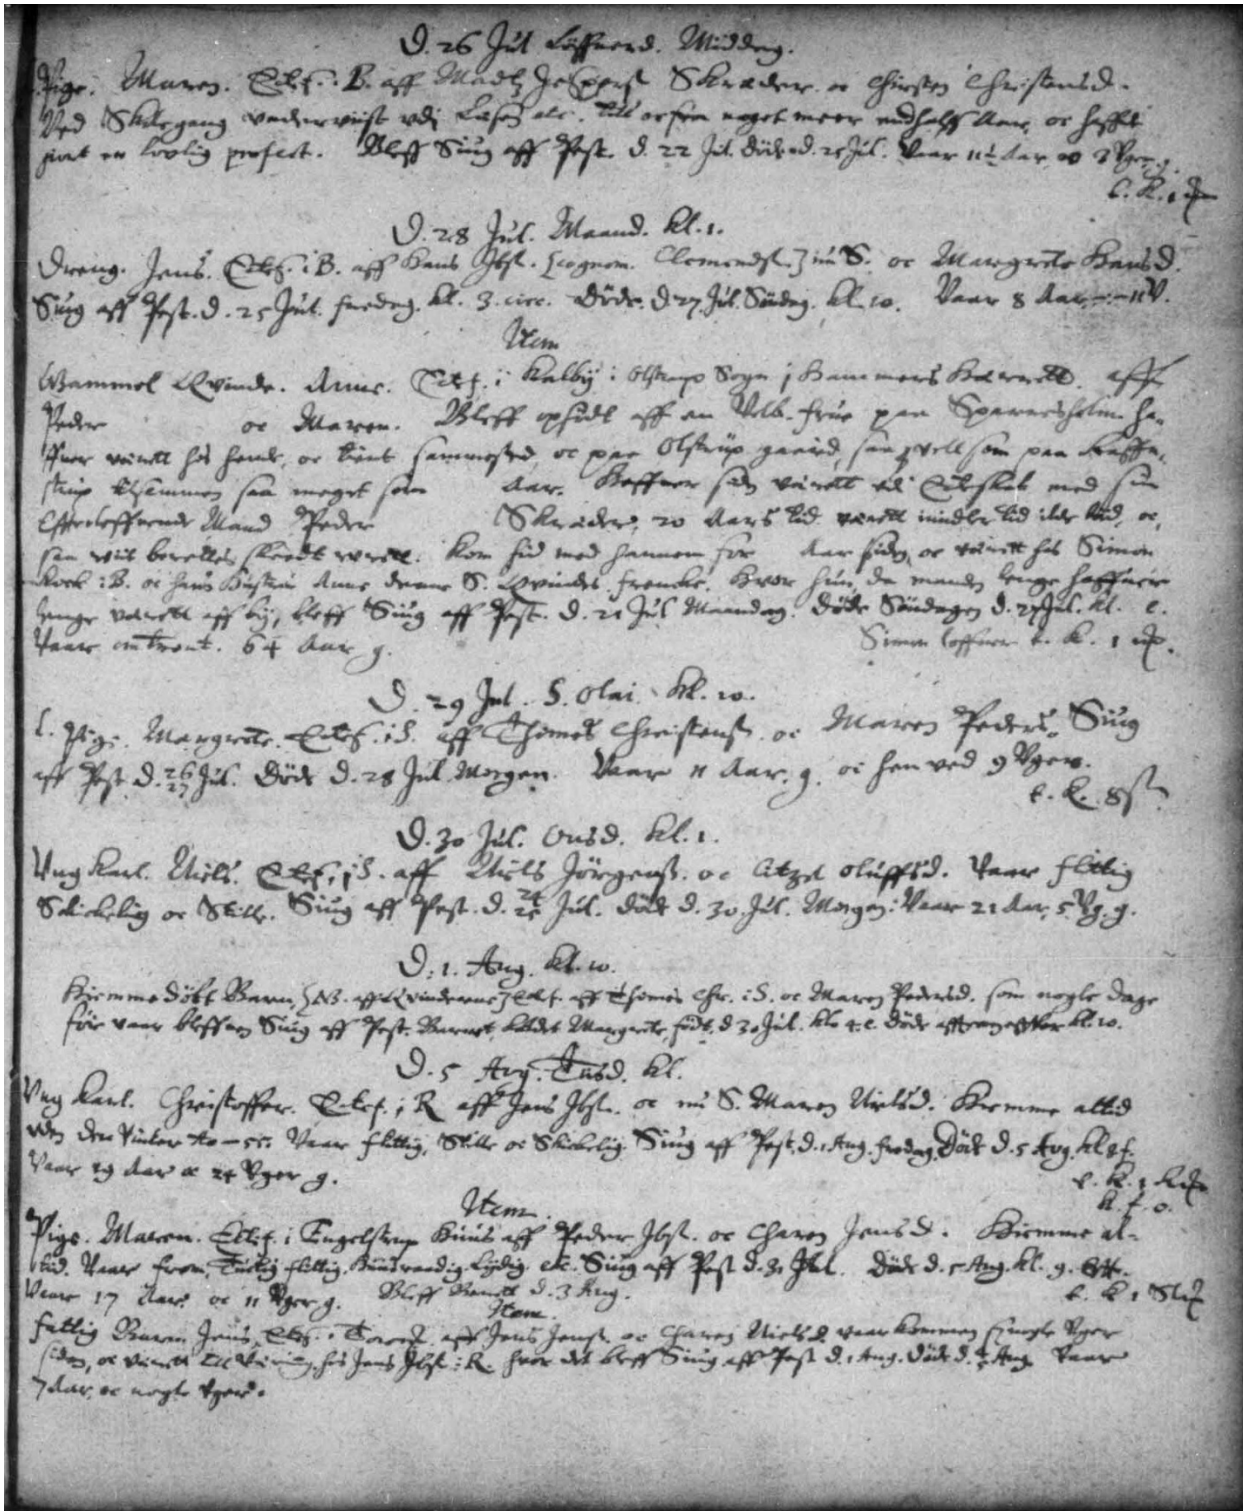 D. 26 Jul Løffuerd. Middag.
Pige. Maren. Ectef. i B. aff Madtz Jespers. Skræder. oc Chirsten Christensd.
Ved Skolegang underviist udj Læsen etc. oc haffde
giort en lovlig profect. Bleff Siug aff Pest. d. 22 Jul. døde d. 25 Jul. Vaar 11½ Aar oc 3 Uger g.
t. K. 1
D. 28 Jul. Maand. kl. 1.
Dreng. Jens. Ectef. i B. aff Hans Ibs. [cognom. Clemends.] nu S. oc Margrete Hansd.
Siug aff Pest. d. 25 Jul. fredag. kl. 3. circ. døde d. 27 Jul. Søndag. kl. 10. Vaar 8 Aar 11 V.
Item
Gammel Qvinde. Anne. Ectef. i Kalby i Olstrup Sogn i Hammers Herrett. aff
Peder oc Maren. Bleff opfødt aff en Velb. frue paa Sparresholm ha-
ffuer værett hos hende, oc tient sammested, oc paa Olstrup gaard, saa vell som paa
strup tilsammen saa meget som Aar. Haffuer siden værett udi Ecteskab med sin
Effterleffuende Mand Peder Skræder, 20 Aars tid
saa viit berettes skeedt værett. Kom hid med hannem for Aar siden, oc værett hos Simon
Kock i B. oc hans Hustru Anne denne S. Qvindes frencke. Hvor hun, da manden lenge haffuer
lenge værett aff by, bleff Siug aff Pest. d. 21 Jul Maandag. døde Søndagen d. 27 Jul. kl.
Vaar omtrent. 64 Aar g. Simon loffuer t. K. 1
D. 29 Jul. S. Olai. kl. 10.
l. Pige. Margrete. Ectef. i S. aff Thomas Christens. oc Maren Peders. Siug
aff Pest. d. 26 27 Jul. døde d. 28 Jul Morgen. Vaar 11 Aar. g. oc hen ved 9 Uger.
t. K. 8 s.
D. 30 Jul. Onsd. kl. 1.
Ung karl. Niels. Ectef. i S. aff Niels Jørgens. oc Citzel Oluffsd. Vaar flittig
Skickelig oc Stille. Siug aff Pest. d. 24 25 Jul. døde d. 30. Jul. Morgen. Vaar 21 Aar 5 Ug. g.
D. 1. Aug. kl. 10.
Hiemmedøbt Barn, [NB. aff Qvinderne] Ectef. aff Thomas Chr. i S. oc Maren Pedersd. som nogle dage
før vaar bleffuen Siug aff Pest. Barnet kaldet Margrete, født d. 30 Jul. kl. 4. døde kl. 10.
D. 5 Aug. Tiisd. kl.
Ung karl. Christoffer. Ectef. i R aff Jens Ibs. oc nu S. Maren Nielsd. Hiemme altid
uden den Vinter Ao - 55. Vaar flittig, Stille oc Skickelig. Siug aff Pest. d. 1 Aug. fredag. Døde d. 5 Aug. kl.
Vaar 19 Aar oc 25 Uger g.
t. K. 1
K. f. o.
Item.
Pige. Maren. Ectef. i Engelstrup Huus aff Peder Ibs. oc Charen Jensd. Hiemme al-
tid. Vaar from, Tuctig flittig, Lydig etc. Siug aff Pest d. 31 Jul. døde d. 5 Aug. kl. 9.
Vaar 17 Aar oc 11 Uger g. Bleff Berett d. 3 Aug. t. K 1
Item.
Fattig Barn Jens, Ectef. i aff Jens Jens. oc Charen Nielsd. vaar kommen nogle Uger
siden, oc værett hos Jens Ibs. i R. hvor det bleff Siug aff Pest d. 1 Aug. døde d. Aug. Vaar
7 Aar, oc nogle Uger.